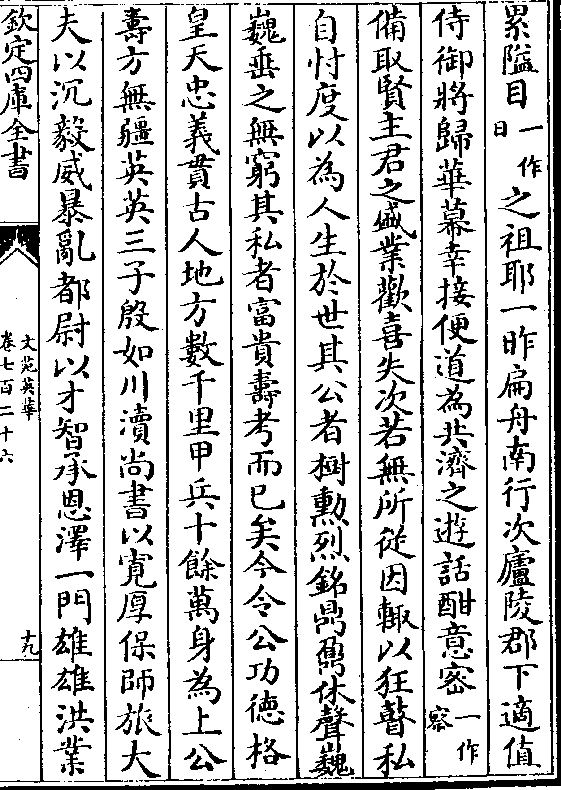 累隘目一作日之祖耶一昨扁舟南行次廬陵郡下適值
侍御將歸華幕幸接便道為共濟之遊話酣意密一作容
備取賢主君之盛業歡喜失次若無所從因輒以狂瞽私
自忖度以為人生於世其公者樹勲烈銘鼎鼐休聲巍
巍垂之無窮其私者富貴壽考而已矣今令公功徳格
皇天忠義貫古人地方數千里甲兵十餘萬身為上公
壽方無疆英英三子殷如川瀆尚書以寛厚保師旅大
夫以沉毅威暴亂都尉以才智承恩澤一門雄雄洪業
欽定四庫全書
文苑英華
卷七百二十六
十九